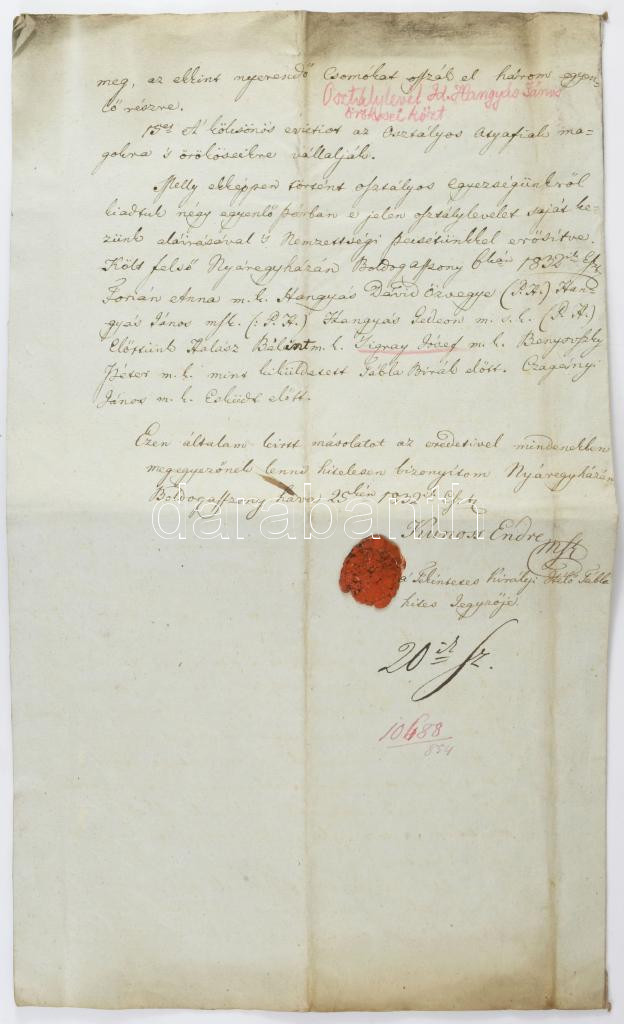 meg, az ekkint nyerendő Csomókat oszszák el három egyen-
lő részre.
Osztálylevél Id. Hangyás János
örökösei közt
15ör A' kölcsönös evictiót az Osztályos Atyafiak ma-
gokra 's örököseikre vállalják.
Melly ekképpen történt osztályos egyezségünkről
kiadtuk négy egyenlő párban e jelen osztálylevelet saját ke-
zünk aláirásával 's Nemzettségi pecsétünkkel erősitve.
Költ felső Nyáregyházán Boldogasszony 6kán 1832ik Eszt.
Forián Anna m. k. Hangyás Dávid özvegye (P. H.) Han-
gyás János mk. (: P. H.) Hangyás Gedeon m. s. k. (P. H.)
Előttünk Halász Bálint m. k. Vigray József m. k. Benyovszky
Péter m. k. mint kiküldetett Tábla Birák előtt.
János m. k. Esküdt előtt.
Ezen általam leirtt másolatot az eredetivel mindenekben
megegyezőnek lenni hitelesen bizonyitom Nyáregyházán
Boldogasszony hava 25kén 1832ik Eszt.
Kunoss Endre mk
a' Tekintetes Királyi Itélő Tábla
hites Jegyzője.
20ik Sz.
10488
854
darabanth